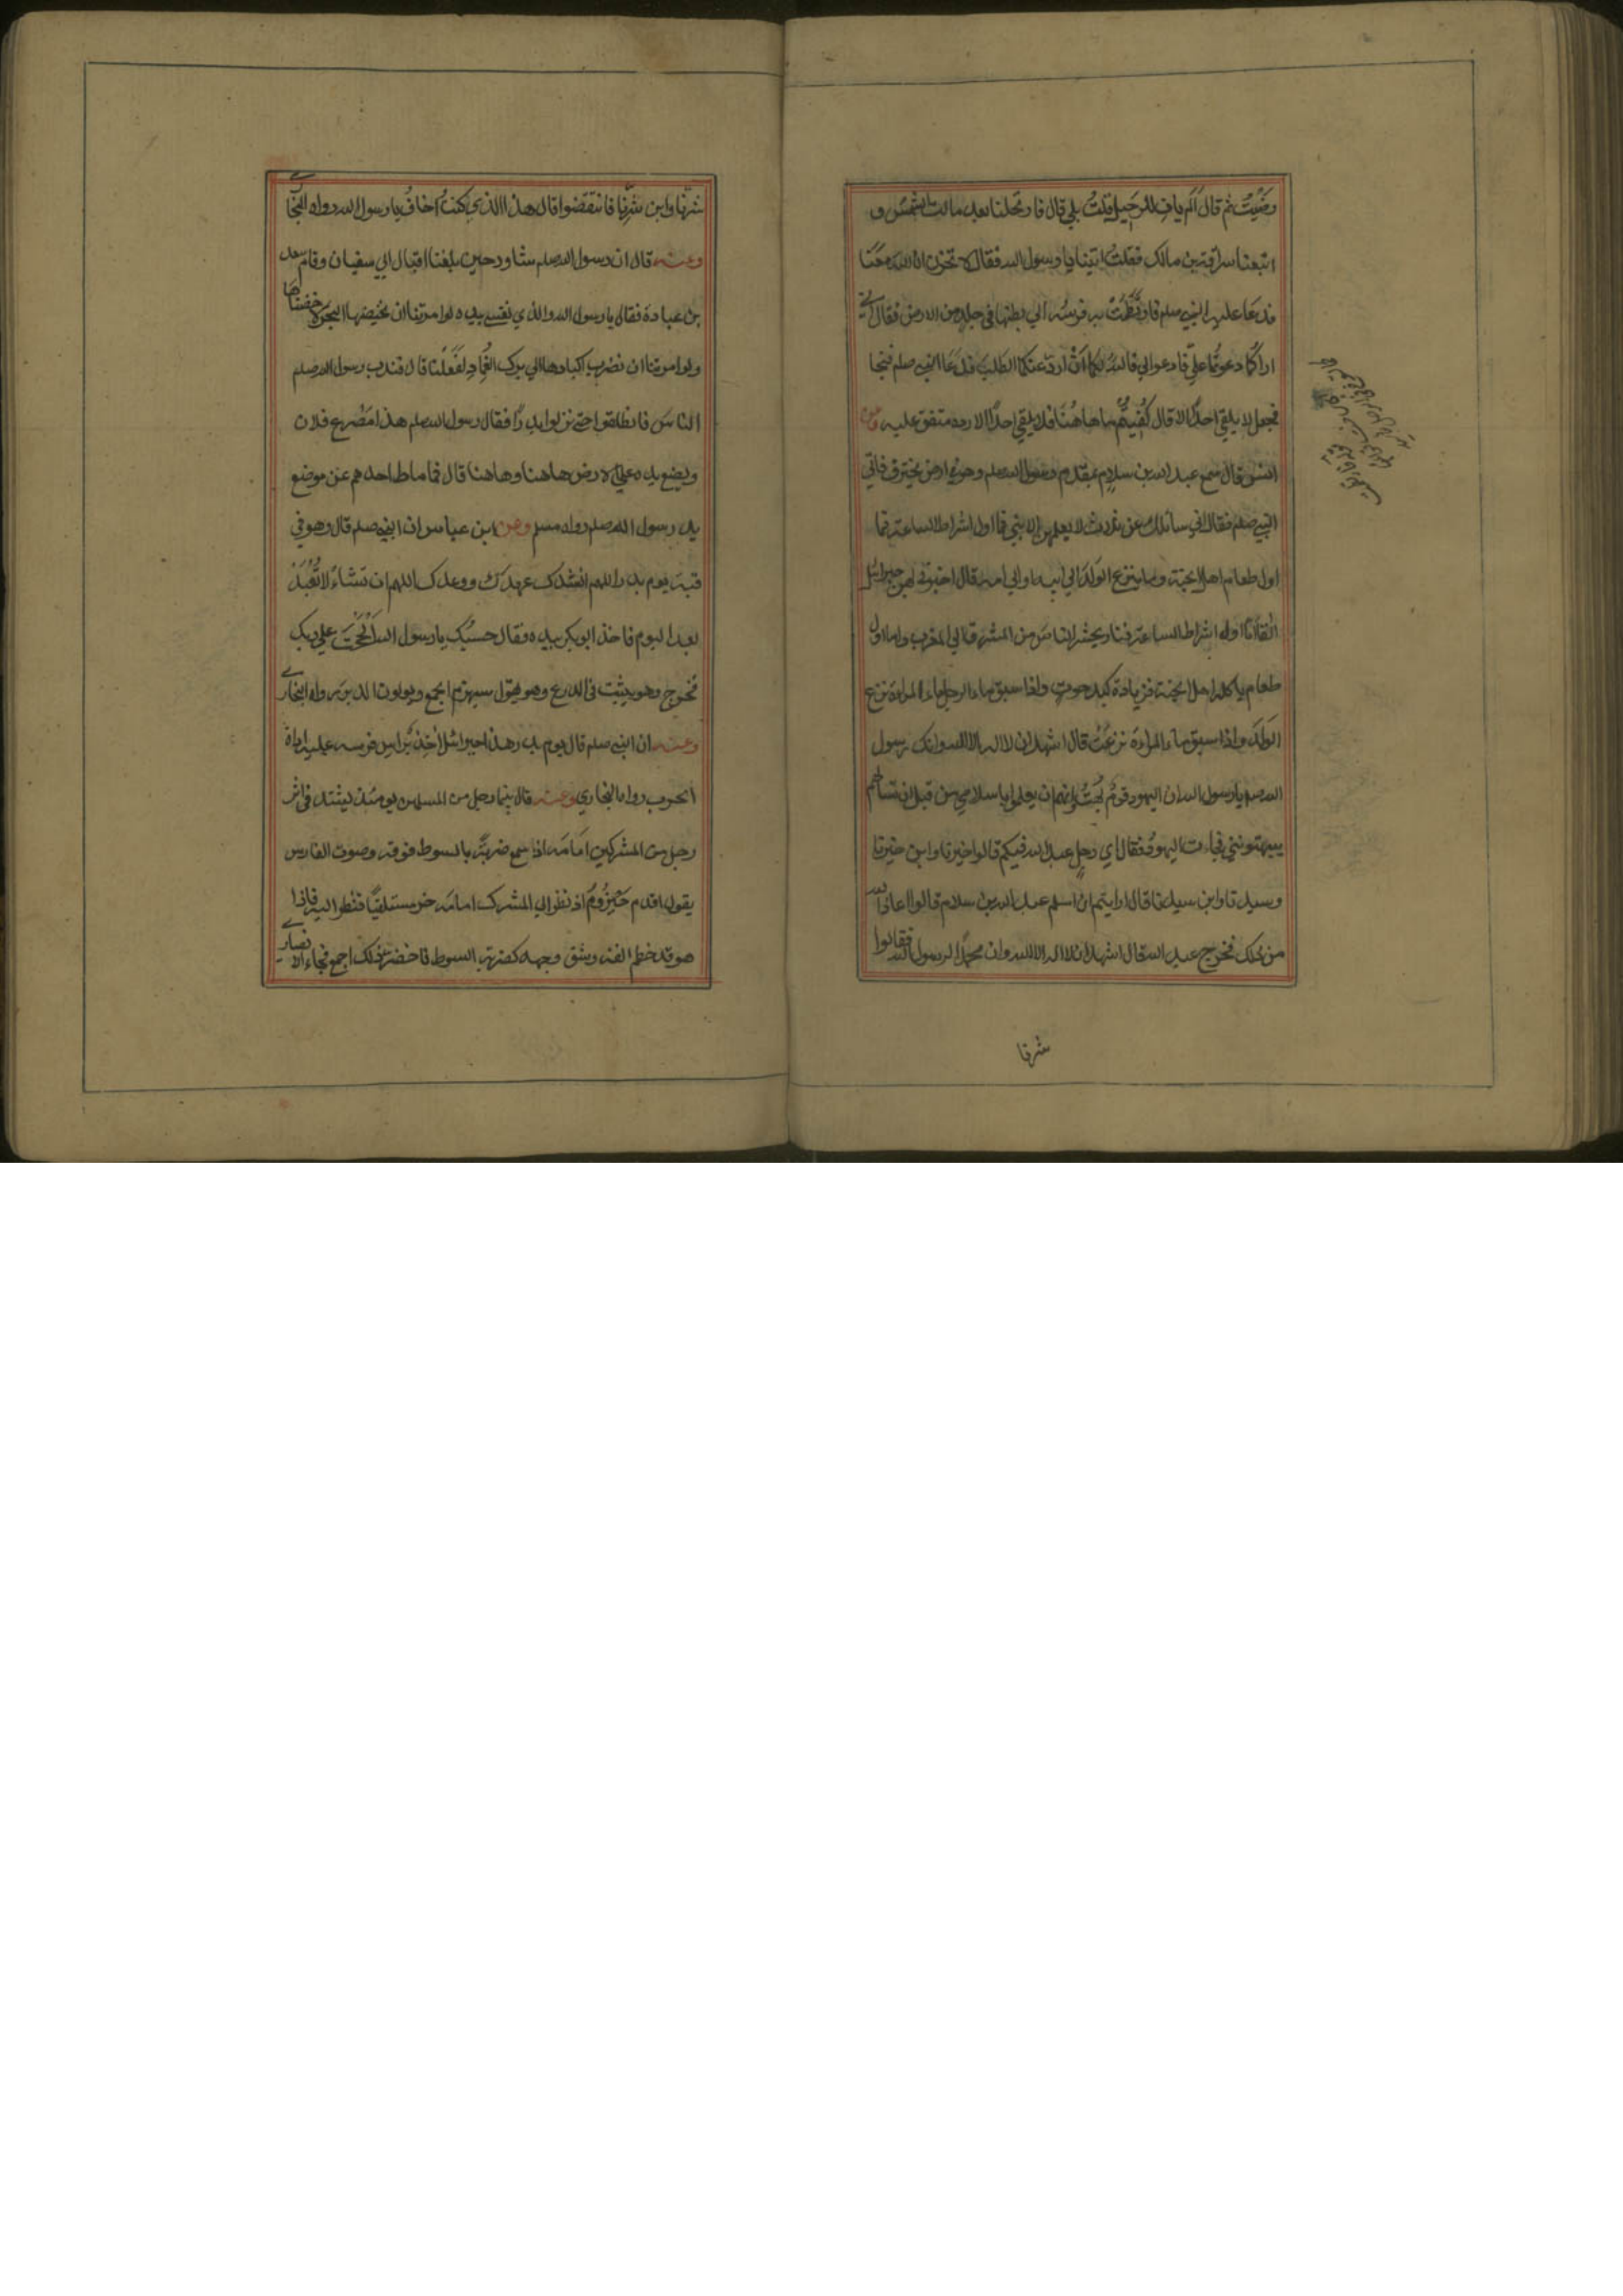 رضيت ثم قال الم يان للرحيل قلت بلي قال فارتحلنا بعد ما مالت الشمس و
اتبعنا سراقة بن مالك فقلت اتينا يا رسول الله فقال لا تحزن ان الله معنا
فدعا عليه النبي صلعم فارتطمت به فرسه الي بطنها في جلد من الارض فقال اني
اراكما دعوتما علي فادعوا لي فالله لكما ان ارد عنكما الطلب فدعا النبي صلعم فنجا
فجعل لا يلقي احدا الا قال كفيتم ما هاهنا فلا يلقي احدا الا رده متفق عليه وعن
انس قال سمع عبد الله بن سلام بمقدم رسول الله صلعم وهو في ارض يخترف فاتي
النبي صلعم فقال اني سائلك عن ثلاث لا يعلمهن الا نبي فما اول اشراط الساعة فما
اول طعام اهل الجنة وما ينزع الولد الي ابيه او الي امه قال اخبرني بهن جبرائيل
انفا اما اول اشراط الساعة فنار يحشر الناس من المشرق الي المغرب واما اول
طعام ياكله اهل الجنة فزيادة كبد حوت واذا سبق ماء الرجل ماء المراءة نزع
الولد واذا سبق ماء المراءة نزعت قال اشهد ان لا اله الا الله وانك رسول
الله يا رسول الله ان اليهود قوم بهت وانهم ان يعلموا باسلامي من قبل ان تسالهم
يبهتونني فجاءت اليهود فقال اي رجل عبد الله فيكم قالوا خيرنا وابن خيرنا
وسيدنا وابن سيدنا قال ارايتم ان اسلم عبد الله بن سلام قالوا اعاذه الله
من ذلك فخرج عبد الله فقال اشهد ان لا اله الا الله وان محمدا رسول الله فقالوا
شرنا
شرنا وابن شرنا فانتقضوا قال هذا الذي كنت اخاف يا رسول الله رواه البخاري
وعنه قال ان رسول الله صلعم شاور حين بلغنا اقبال ابي سفيان وقام سعد
بن عبادة فقال يا رسول الله والذي نفسي بيده لو امرتنا ان نخيضها البحر لاخضناها
ولو امرتنا ان نضرب اكبادها الي برك الغماد لفعلنا قال فندب رسول الله صلعم
الناس فانطلقوا حتي نزلوا بدرا فقال رسول الله صلعم هذا مصرع فلان
ويضع يده علي الارض هاهنا وهاهنا قال فما ماط احدهم عن موضع
يد رسول الله صلعم رواه مسلم وعن ابن عباس ان النبي صلعم قال وهو في
قبة يوم بدر اللهم انشدك عهدك ووعدك اللهم ان تشاء لا تعبد
بعد اليوم فاخذ ابو بكر بيده فقال حسبك يا رسول الله الححت علي ربك
فخرج وهو يثب في الدرع وهو يقول سيهزم الجمع ويولون الدبر رواه البخاري
وعنه ان النبي صلعم قال يوم بدر هذا جبرائيل اخذ براس فرسه عليه اداة
الحرب رواه البخاري وعنه قال بينما رجل من المسلمين يومئذ يشتد في اثر
رجل من المشركين امامه اذ سمع ضربة بالسوط فوقه وصوت الفارس
يقول اقدم حيزوم اذ نظر الي المشرك امامه خر مستلقيا فنظر اليه فاذا
هو قد خطم انفه وشق وجهه كضربة السوط فاخضر ذلك اجمع فجاء الانصاري